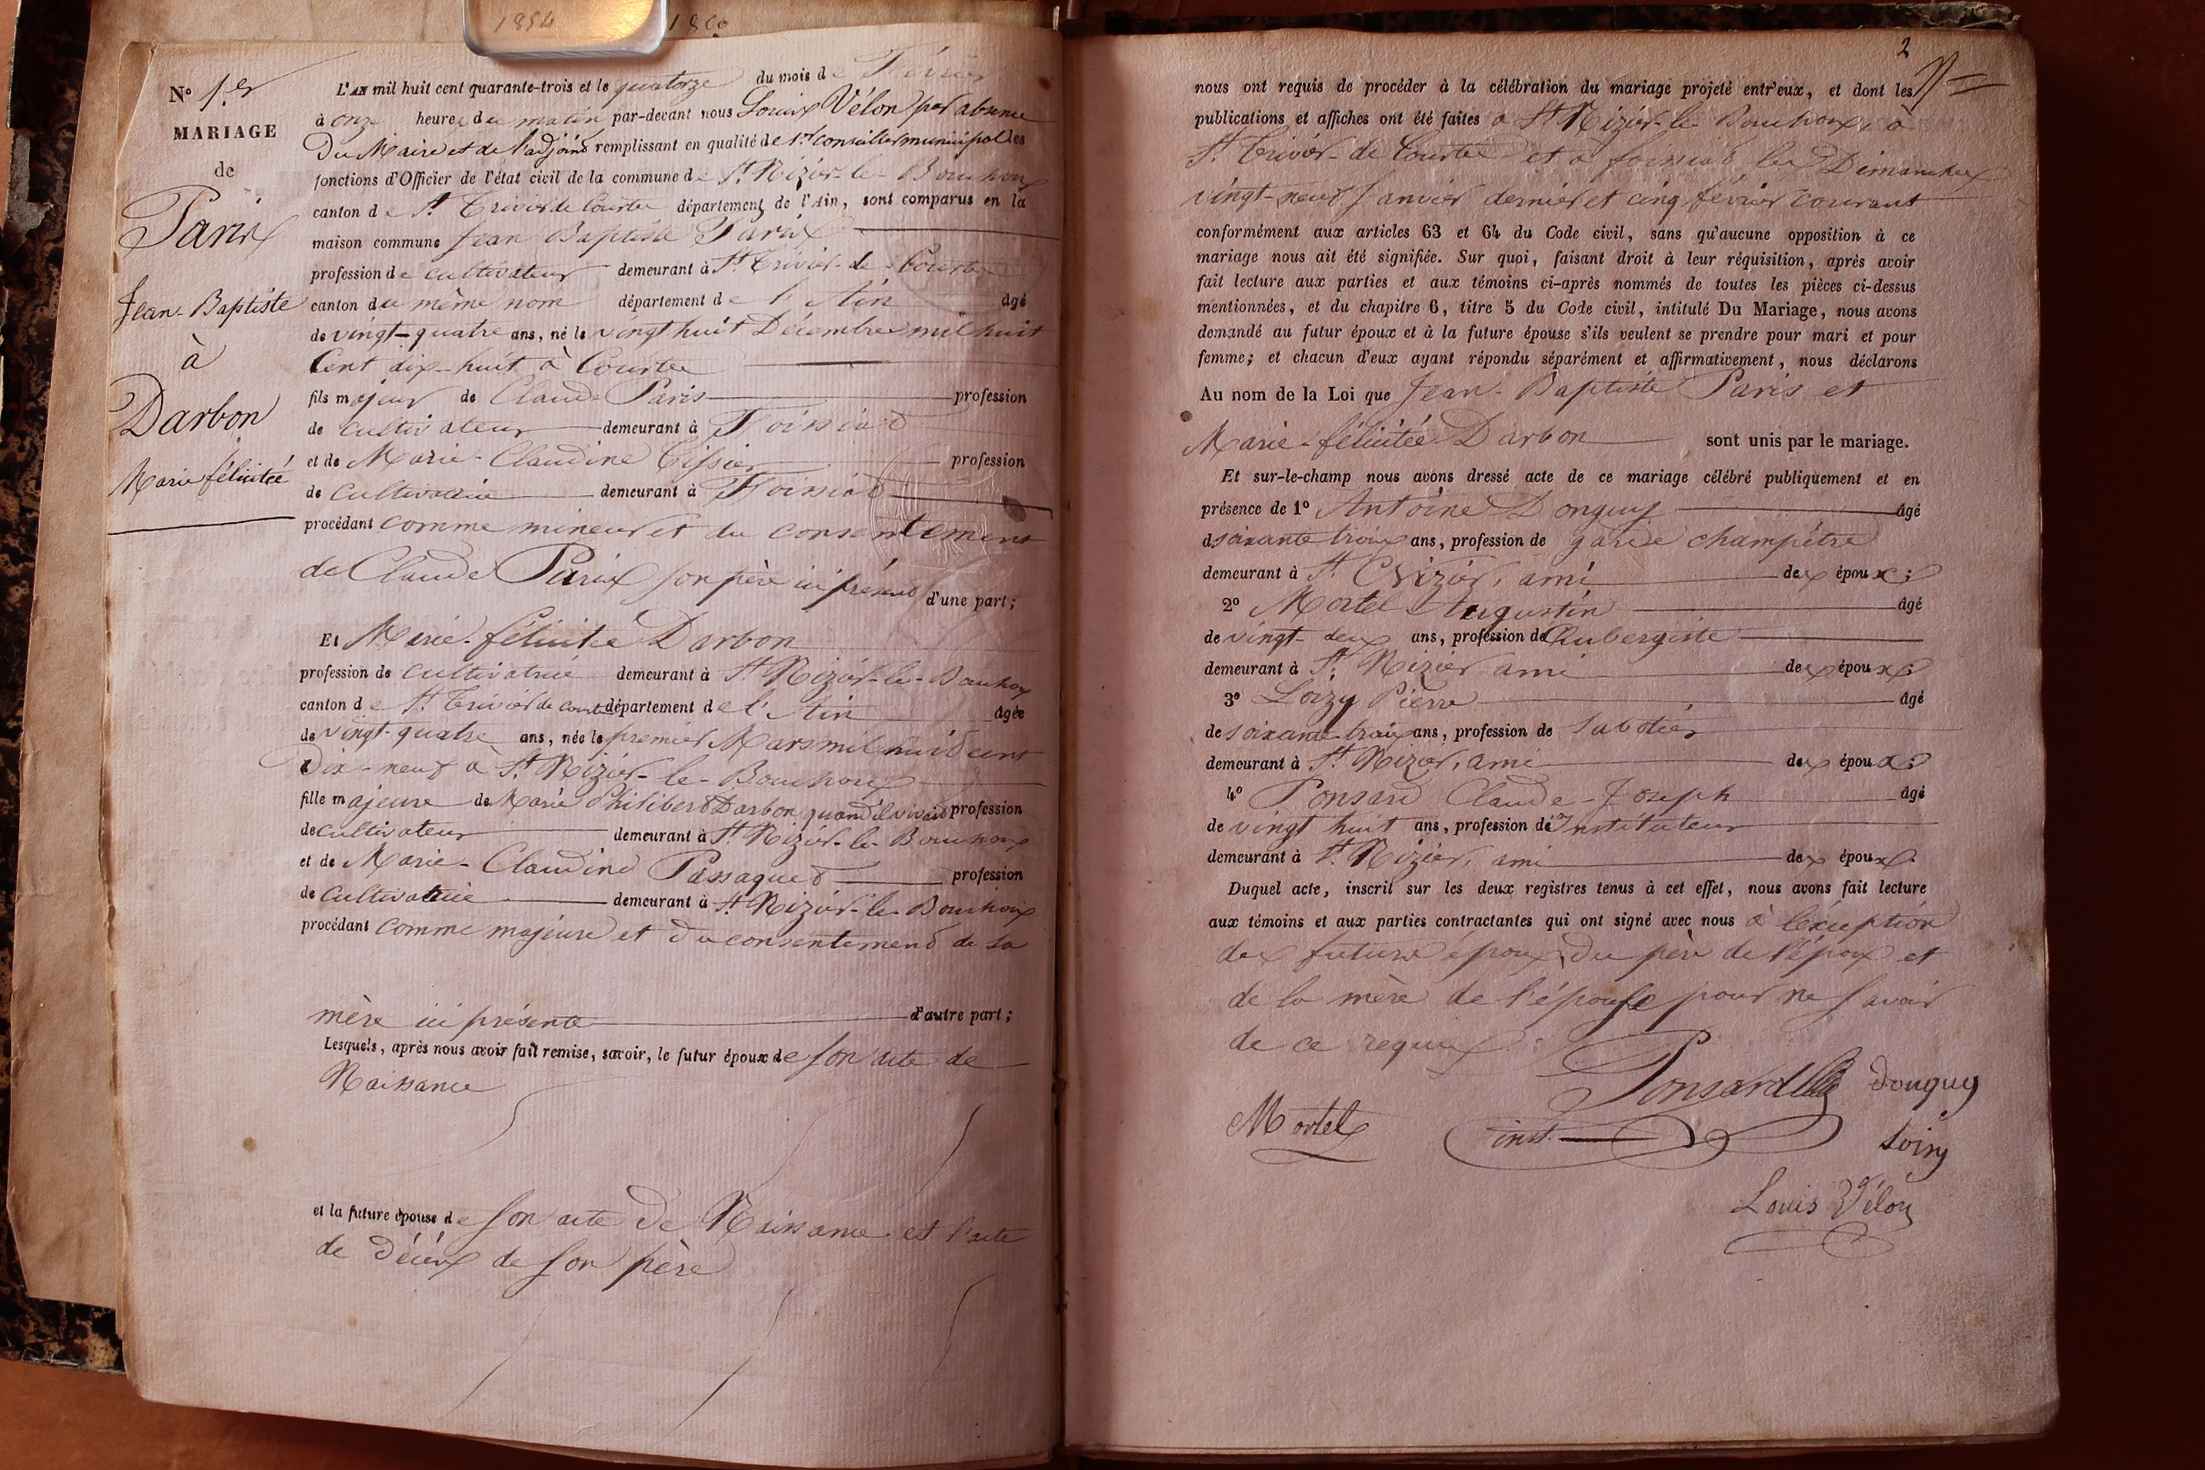 1854
N° 1.er
MARIAGE
de
Paris
Jean-Baptiste
à
Darbon
Marie félicitée
L'AN mil huit cent quarante-trois et le quatorze du mois de Février
à onze heures du matin par-devant nous Louis Vélon par absence
Du Maire et de l'adjoint remplissant en qualité de 1.er conseiller municipal les
fonctions d'Officier de l'état civil de la commune de St. Nizier-le-Bouchoux
canton de St. Trivier de Courtes département de l'Ain, sont comparus en la
maison commune Jean Baptiste Paris
profession de cultivateur demeurant à St. Trivier-de-Courtes
canton du même nom département de l'Ain âgé
de vingt-quatre ans, né le vingt huit Décembre mil huit
Cent dix-huit à Courtes
fils majeur de Claude Paris profession
de cultivateur demeurant à Foissiat
et de Marie-Claudine Tissier profession
de cultivatrice demeurant à Foissiat
procédant comme mineur et du consentement
de Claude Paris son père ici présent d'une part;
Et Marie-félicité Darbon
profession de cultivatrice demeurant à St. Nizier-le-Bouchoux
canton de St. Trivier de Courtes département de l'Ain âgée
de vingt-quatre ans, née le premier Mars mil huit cent
Dix-neuf à St. Nizier-le-Bouchoux
fille majeure de Marie Philibert Darbon quand il vivait profession
de cultivateur demeurant à St. Nizier-le-Bouchoux
et de Marie-Claudine Passaquet profession
de cultivatrice demeurant à St. Nizier-le-Bouchoux
procédant comme majeure et du consentement de sa
mère ici présente d'autre part;
Lesquels, après nous avoir fait remise, savoir, le futur époux de son acte de
Naissance
et la future épouse de son acte de Naissance et l'acte
de décès de son père
2
nous ont requis de procéder à la célébration du mariage projeté entr'eux, et dont les
publications et affiches ont été faites à St. Nizier-le-Bouchoux, à
St. Trivier-de-Courtes et à foissiat les Dimanches
vingt-neuf Janvier dernier et cinq février courant
conformément aux articles 63 et 64 du Code civil, sans qu'aucune opposition à ce
mariage nous ait été signifiée. Sur quoi, faisant droit à leur réquisition, après avoir
fait lecture aux parties et aux témoins ci-après nommés de toutes les pièces ci-dessus
mentionnées, et du chapitre 6, titre 5 du Code civil, intitulé Du Mariage, nous avons
demandé au futur époux et à la future épouse s'ils veulent se prendre pour mari et pour
femme; et chacun d'eux ayant répondu séparément et affirmativement, nous déclarons
Au nom de la Loi que Jean-Baptiste Paris et
Marie-félicitée Darbon sont unis par le mariage.
Et sur-le-champ nous avons dressé acte de ce mariage célébré publiquement et en
présence de 1° Antoine Donguy âgé
de soixante trois ans, profession de garde champêtre
demeurant à St. Nizier, ami des époux;
2° Mortel Augustin âgé
de vingt-deux ans, profession de Aubergiste
demeurant à St. Nizier ami des époux;
3° Loizy Pierre âgé
de soixante trois ans, profession de sabotier
demeurant à St. Nizier, ami des époux;
4° Ponsard Claude-Joseph âgé
de vingt huit ans, profession d'Instituteur
demeurant à St. Nizier, ami des époux.
Duquel acte, inscrit sur les deux registres tenus à cet effet, nous avons fait lecture
aux témoins et aux parties contractantes qui ont signé avec nous à l'éxception
des futurs époux, du père de l'époux et
de la mère de l'épouse pour ne savoir
de ce requis.
Ponsard Donguy
Mortel inst. Loizy
Louis Vélon